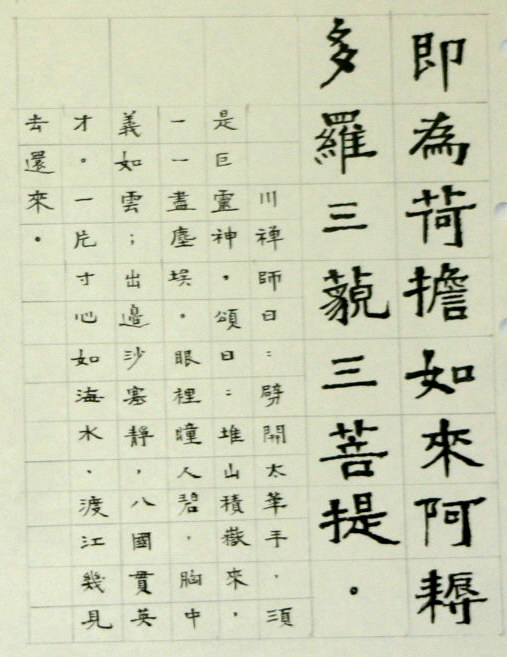 即為荷擔如來阿耨
多羅三藐三菩提。
川禅師曰：劈開太華手，須
是巨靈神。頌曰：堆山積嶽來，
一一盡塵埃。眼裡瞳人碧，胸中
義如雲；出邊沙塞靜，八國貫英
才。一片寸心如海水，渡江幾見
去還來。